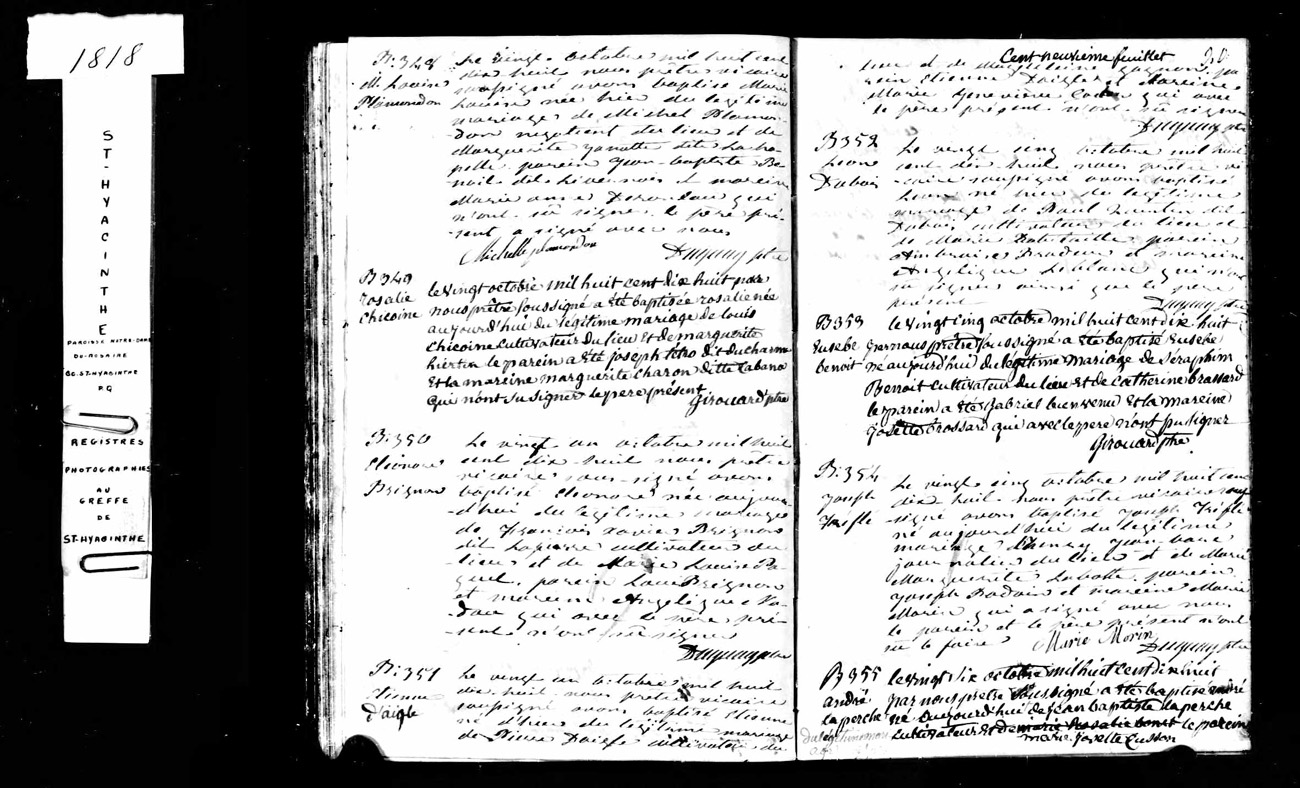 1818
ST-HYACINTHE
PAROISSE NOTRE-DAME
DU-ROSAIRE
DE ST-HYACINTHE
P.Q
REGISTRES
PHOTOGRAPHIES
AU
GREFFE
DE
ST-HYACINTHE
B. 348
M. Louise
Plamondon
Le vingt octobre mil huit cent
dix huit nous prêtre vicaire
soussigné avons baptisé Marie
Louise née hier du légitime
mariage de Michel Plamon-
-don négotiant du lieu et de
Marguerite
parein Jean-baptiste Be-
-noit dit Livernois et mareine
Marie anne qui
n'ont su signer le père pré-
-sent a signé avec nous
Michelle plamondon
Duguay ptre
B 349
rosalie
chicoine
le vingt octobre mil huit cent dix huit par
nous prêtre soussigné a été baptisée rosalie née
aujourd'hui du légitime mariage de louis
chicoine cultivateur du lieu et de marguerite
hiertin le parein a été joseph tétro dit ducharme
et la mareine marguerite charon ditte cabana
qui n'ont su signer le pere présent
Girouard ptre
B. 350
Eléonore
Brignon
Le vingt un octobre mil huit
cent dix huit nous prêtre
vicaire sous-signé avons
baptisé Eleonore née aujour-
-d'hui du légitime mariage
de François Xavier Brignon
dit Lapierre cultivateur du
lieu et de Marie Louise Pa-
-quet, parein Louis Brignon
et mareine Angelique Na-
-dau qui avec le père pré-
-sent n'ont su signer
Duguay ptre
B. 351
Etienne
d'aigle
Le vingt un octobre mil huit
dix huit nous prêtre vicaire
soussigné avons baptisé Etienne
né d'hier du légitime mariage
de Pierre Daigle cultivateur du
Cent neuvieme feuillet
lieu et de
-rein Etienne Daigle et mareine
Marie Genevieve qui avec
le père présent n'ont su signer
Duguay ptre
B 352
Dubois
Le vingt cinq octobre mil huit
cent dix huit nous prêtre vi-
-caire soussigné avons baptisé
né hier du légitime
mariage de Paul dit
Dubois cultivateur du lieu et
de Marie parein
Ambroise et mareine
Angelique Leblanc qui n'ont
su signer ainsi que le père
présent
Duguay ptre
B 353
Eusebe
benoit
le vingt cinq octobre mil huit cent dix huit
par nous prêtre soussigné a été baptisé Eusebe
né aujourd'hui du légitime mariage de séraphim
Benoit cultivateur du lieu et de catherine brassard
le parein a été Gabriel bienvenu et la mareine
josette brossard qui avec le pere n'ont pu signer
Girouard ptre
B. 354
Joseph
Trefle
Le vingt cinq octobre mil huit cent
dix huit nous prêtre vicaire sous
-signé avons baptisé Joseph Trefle
né aujourd'hui du légitime
mariage
journalier du lieu et de Marie
Marguerite Labotte parein
Joseph et mareine Marie
Morin qui a signé avec nous
le parein et le père présent n'ont
su le faire
Marie Morin
Duguay ptre
B 355
andré
laperche
le vingt six octobre mil huit cent dix huit
par nous prêtre soussigné a été baptisé andré
né aujourd'hui de jean baptiste laperche
cultivateur et de marie rosalie benoit le parein
marie josette cusson